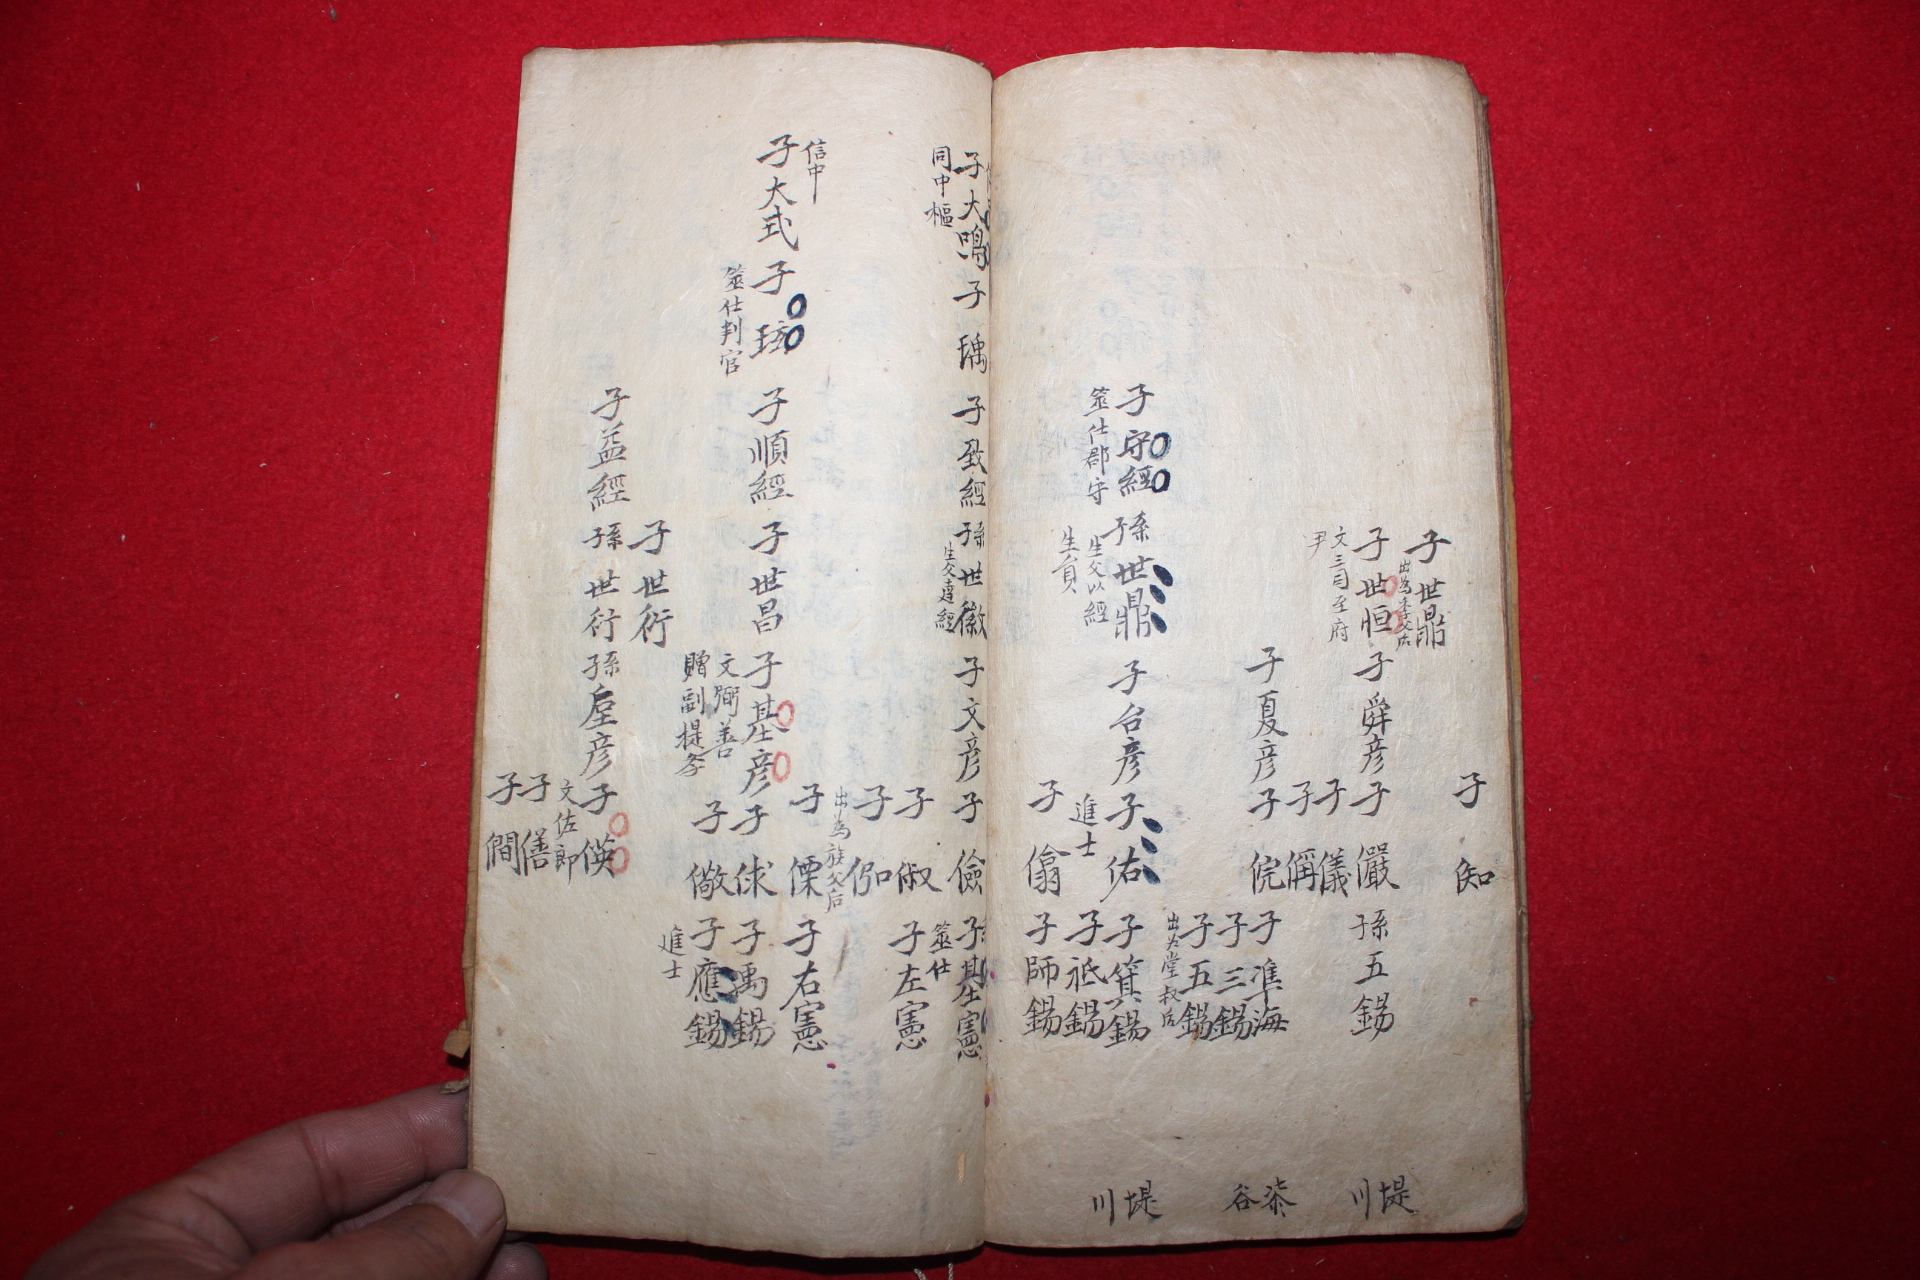 子 知
子世鼎
出為季父后
子世恒 子舜彦 子 儼 孫五錫
文三司至府
尹
子 儀
子 偁
子夏彦 子 俒 子準海
子三錫
子五錫
出为堂叔后
子守經 孫世鼎 子台彦 子 佑 子箕錫
筮仕郡守
生父以經
生員
進士
子祗錫
子 僃 子師錫
堤川
柒谷
堤川
子大鳴 子 瑀 子致經 孫世徽 子文彦 子 儉 子基憲
同中樞
筮仕
子 俶 子左憲
子
出為族父后
子 僳 子右憲
信中
子大式 子 子順經 子世昌 子基彦 子 俅 子禹錫
筮仕判官
文弼善
贈副提學
子 儆 子應錫
進士
子世衍
子益經 孫世衍 孫垕彦 子 偀
文佐郎
子 僐
子 僩